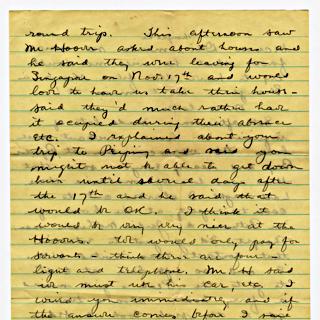 round trip. This afternoon saw
Mr Hoover asked about house and
he said they were leaving for
Singapore on Nov. 17th and would
love to have us take their house -
said they'd much rather have
it occupied during their absence
etc. I explained about your
trip to Peiping and said you
might not be able to get down
here until several days after
the 17th and he said that
would be OK. I think it
would be very very nice at the
Hoovers. We would only pay for
servants - think there are four -
light and telephone. Mr H said
we must use his car, etc. I
wired you immediately and if
the answer comes before I